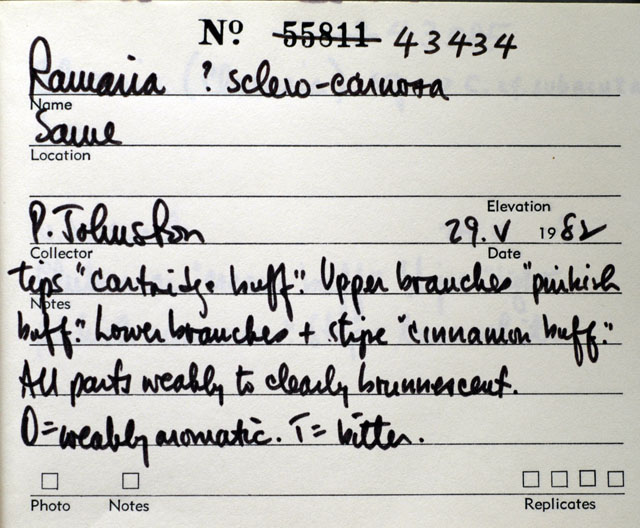 Nº 55811 43434
Ramaria ? sclero-carnosa
Name
Same
Location
Elevation
P. Johnston 29. V 1982
Collector Date
tips "cartridge buff". Upper branches "pinkish
Notes
buff." Lower branches + stipe "cinnamon buff."
All parts weakly to clearly brunnescent.
O = weakly aromatic. T = bitter.
Photo Notes Replicates